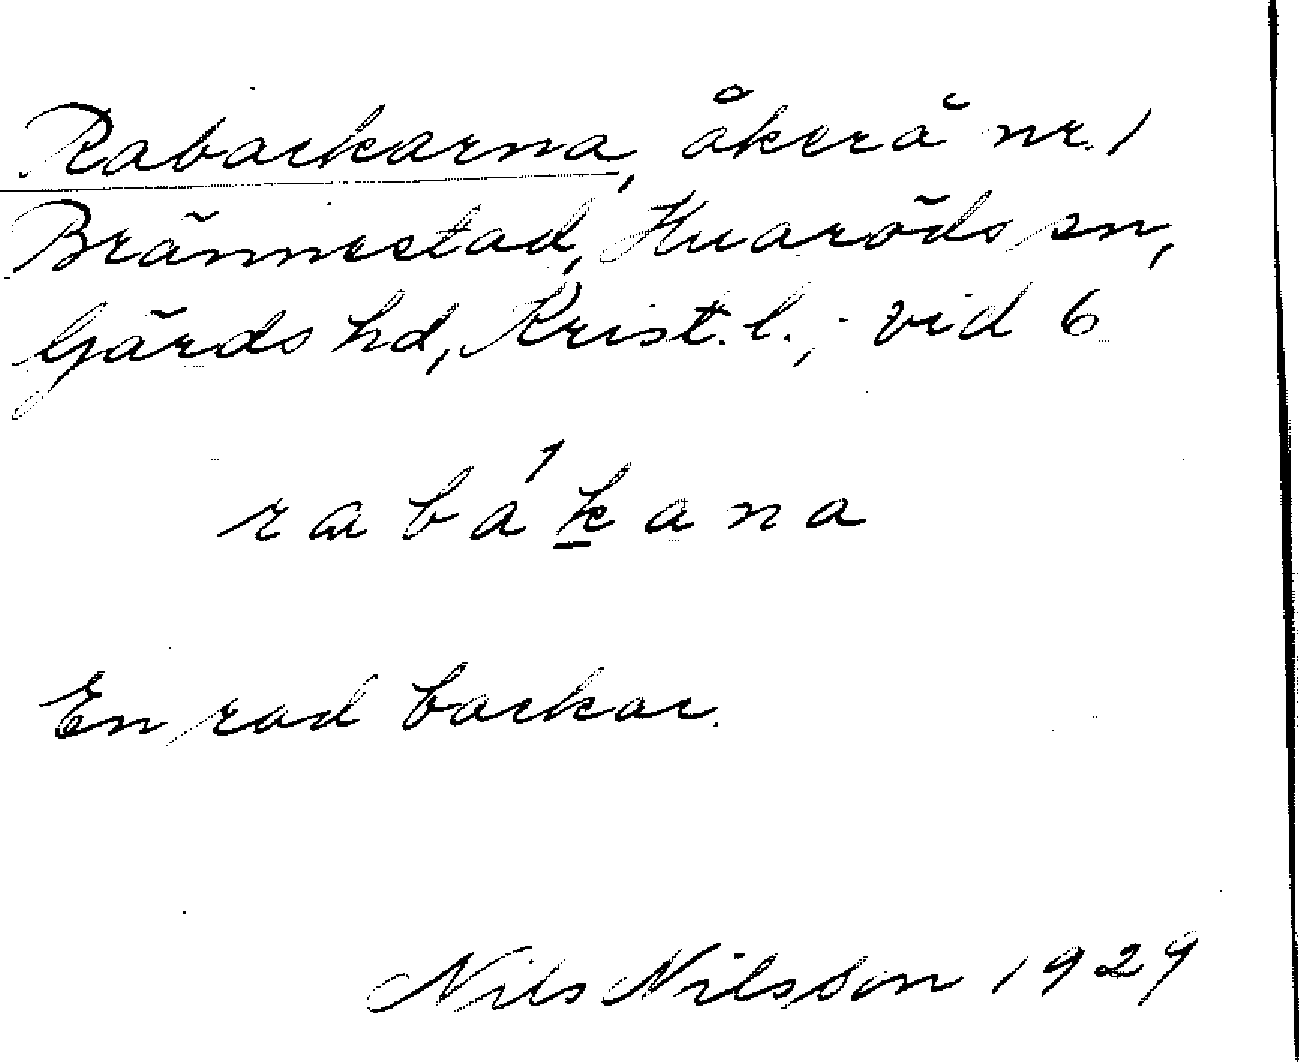 Rabackarna, åker å nr. 1
Brännestad, Huaröds sn,
Gärds hd, Krist. l.; vid 6
rabákana
En rad backar.
Nils Nilsson 1929